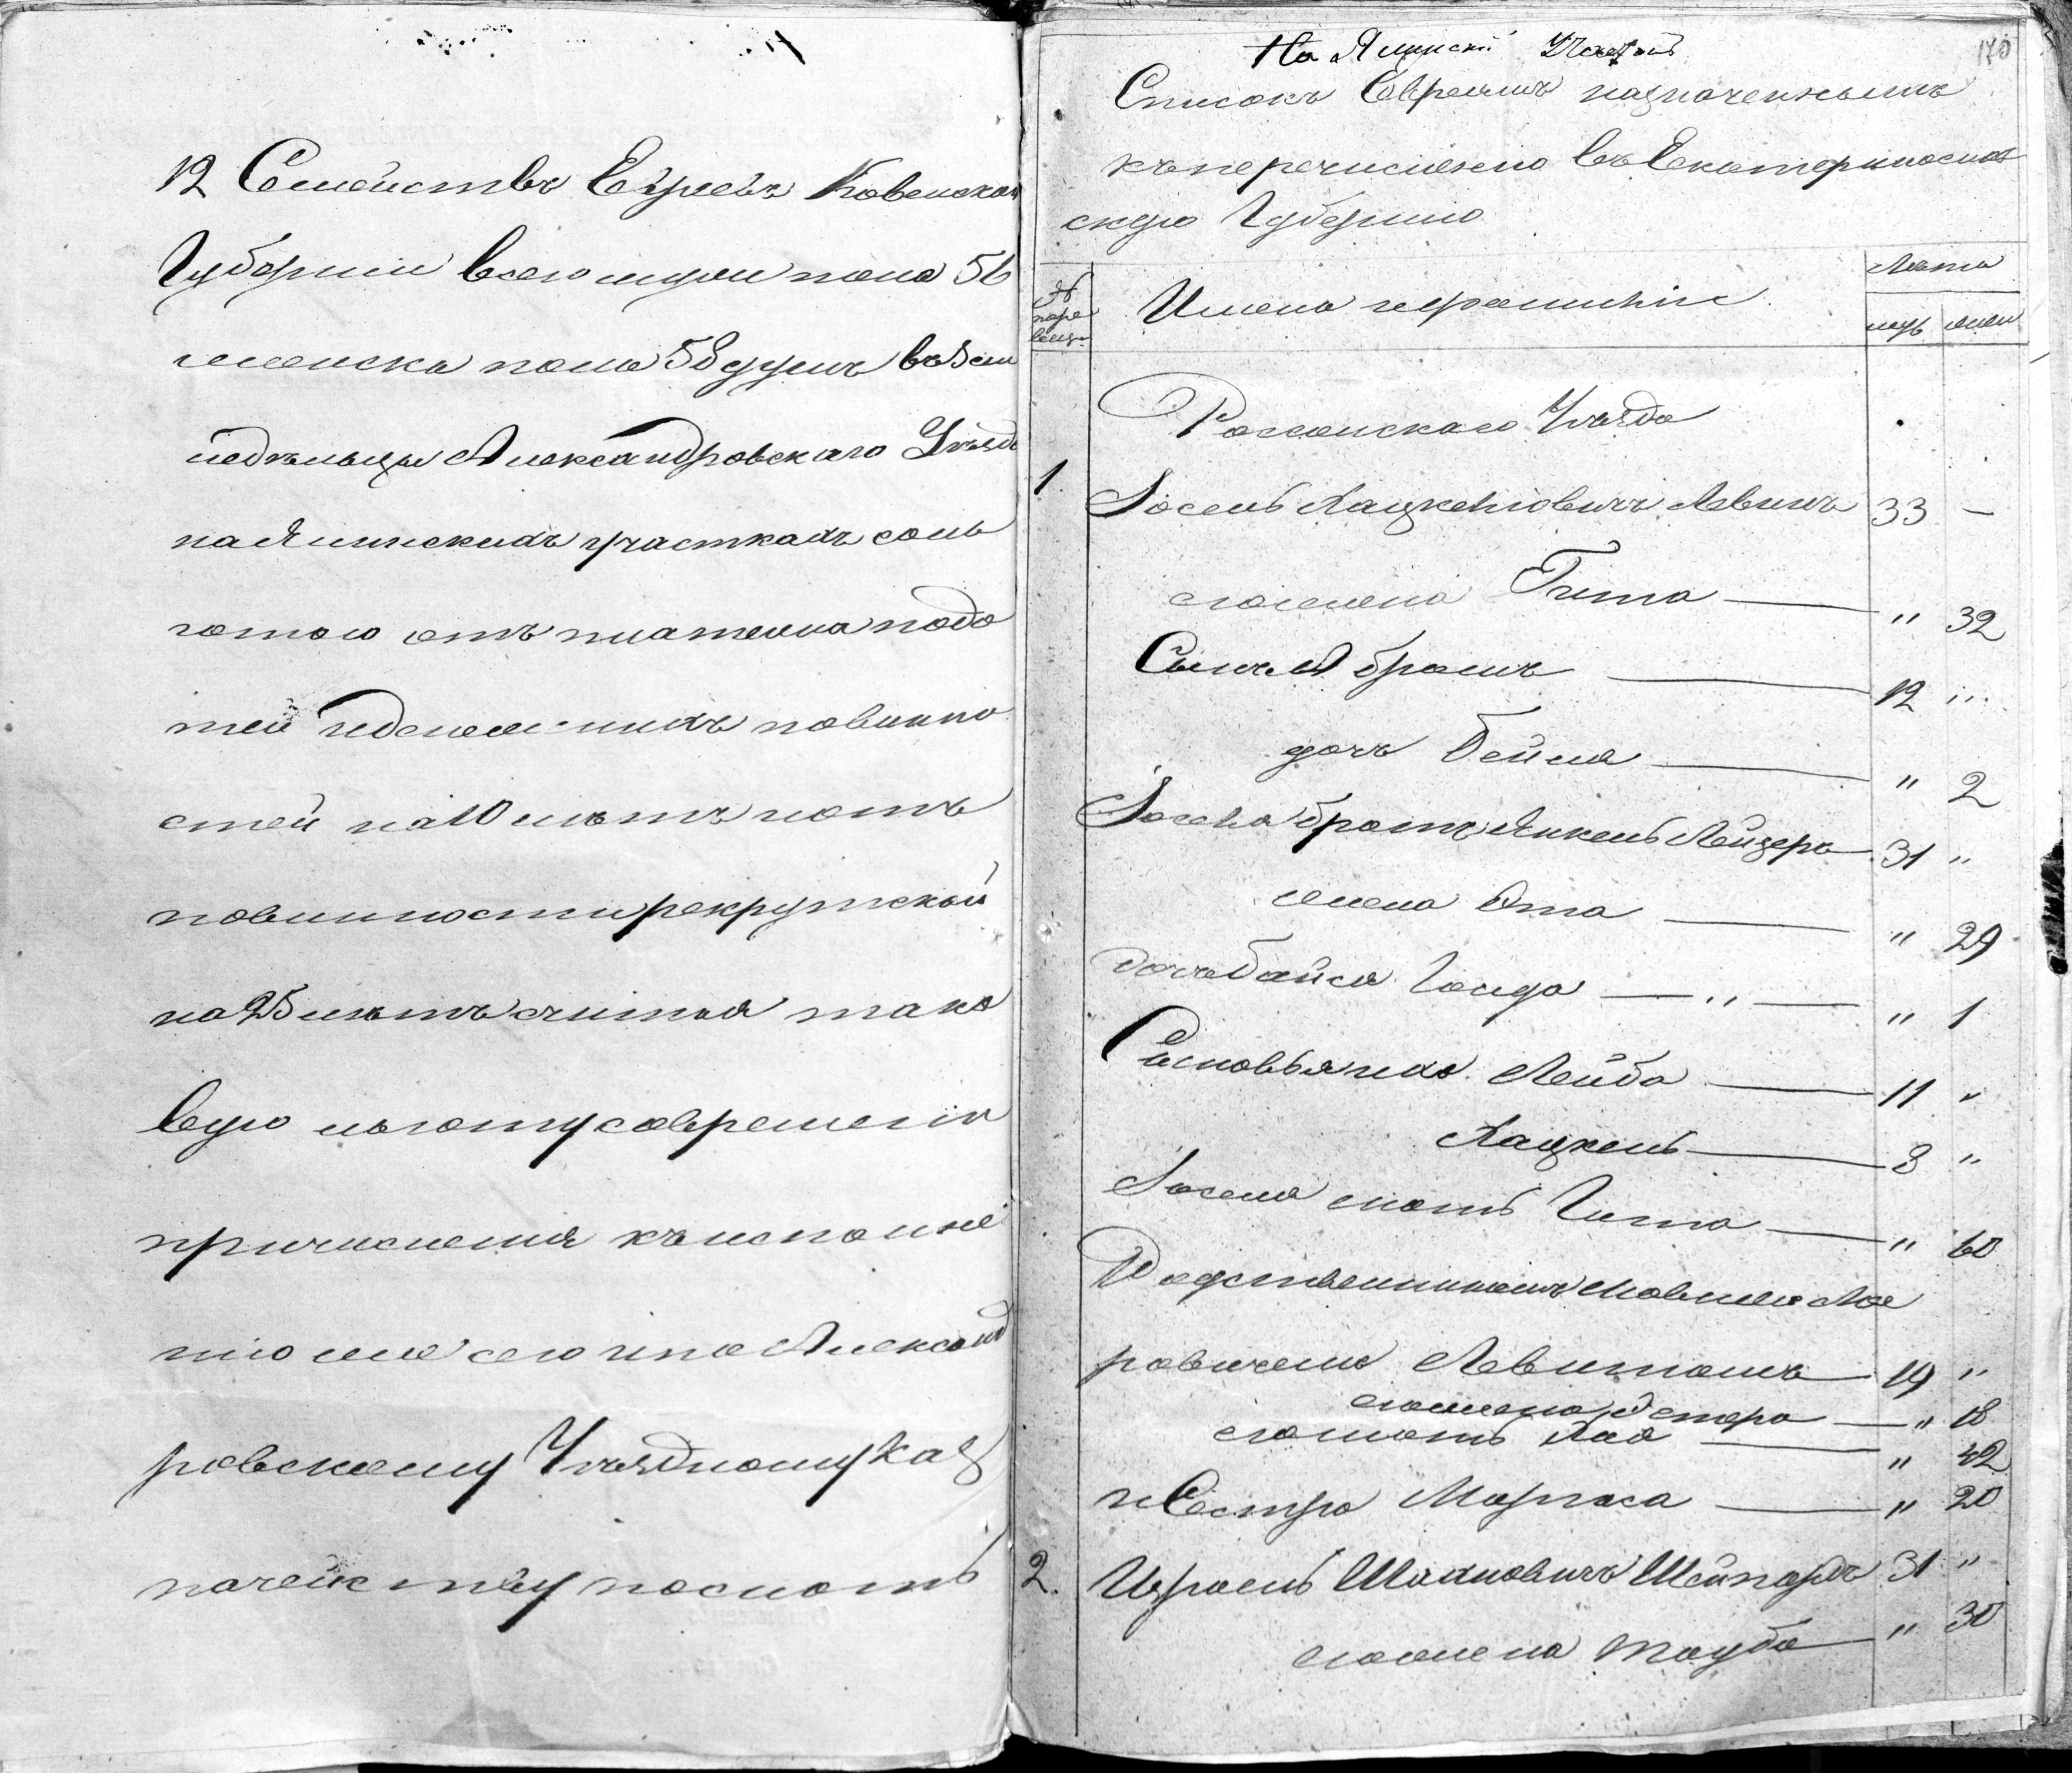 12 Семействъ Евреевъ Ковенской
Губернии всего мужеска пола 56
женска пола 58 душъ въ зем
ледѣльцы Александровскаго Уѣзда
на Ялинскихъ участкахъ солъ
готою отъ платежа подо
тей и денежныхъ повинно
стей на 10 лѣтъ и отъ
повинности рекрутской
на 25 лѣтъ считая тако
вую льготу со времени
причисления къ исполне
нию чего Александ
ровскому Уѣздному каз
начейству послать
170
На Ялинский Участокъ
Списокъ Евреямъ назначеннымъ
къ перечислению въ Екатеринослав
скую Губернию
№ пере
Имена и фамилии
Лѣта
муж жен
Россиенскаго Уѣзда
1. Іосель Лацкелиовичъ Левинъ 33 —
его жена Гита — " 32
Сынъ Абрамъ — 12 "
дочь Бейля — " 2
Іоселя братъ Янкель Лейзеръ 31 "
жена Эта — " 29
дочь Байся Голда — " — " 1
Сыновья ихъ Лейба — 11 "
Лацкель — 8 "
Іоселя мать Гита — " 60
Родственникъ Мовша Лей
ровичъ Левитанъ — 19 "
его жена Эстера — " 18
его мать Лая — " 42
и Сестра Марьяса — " 20
2. Израель Шахновичъ Шейнардъ 31 "
его жена Тауба — " 30